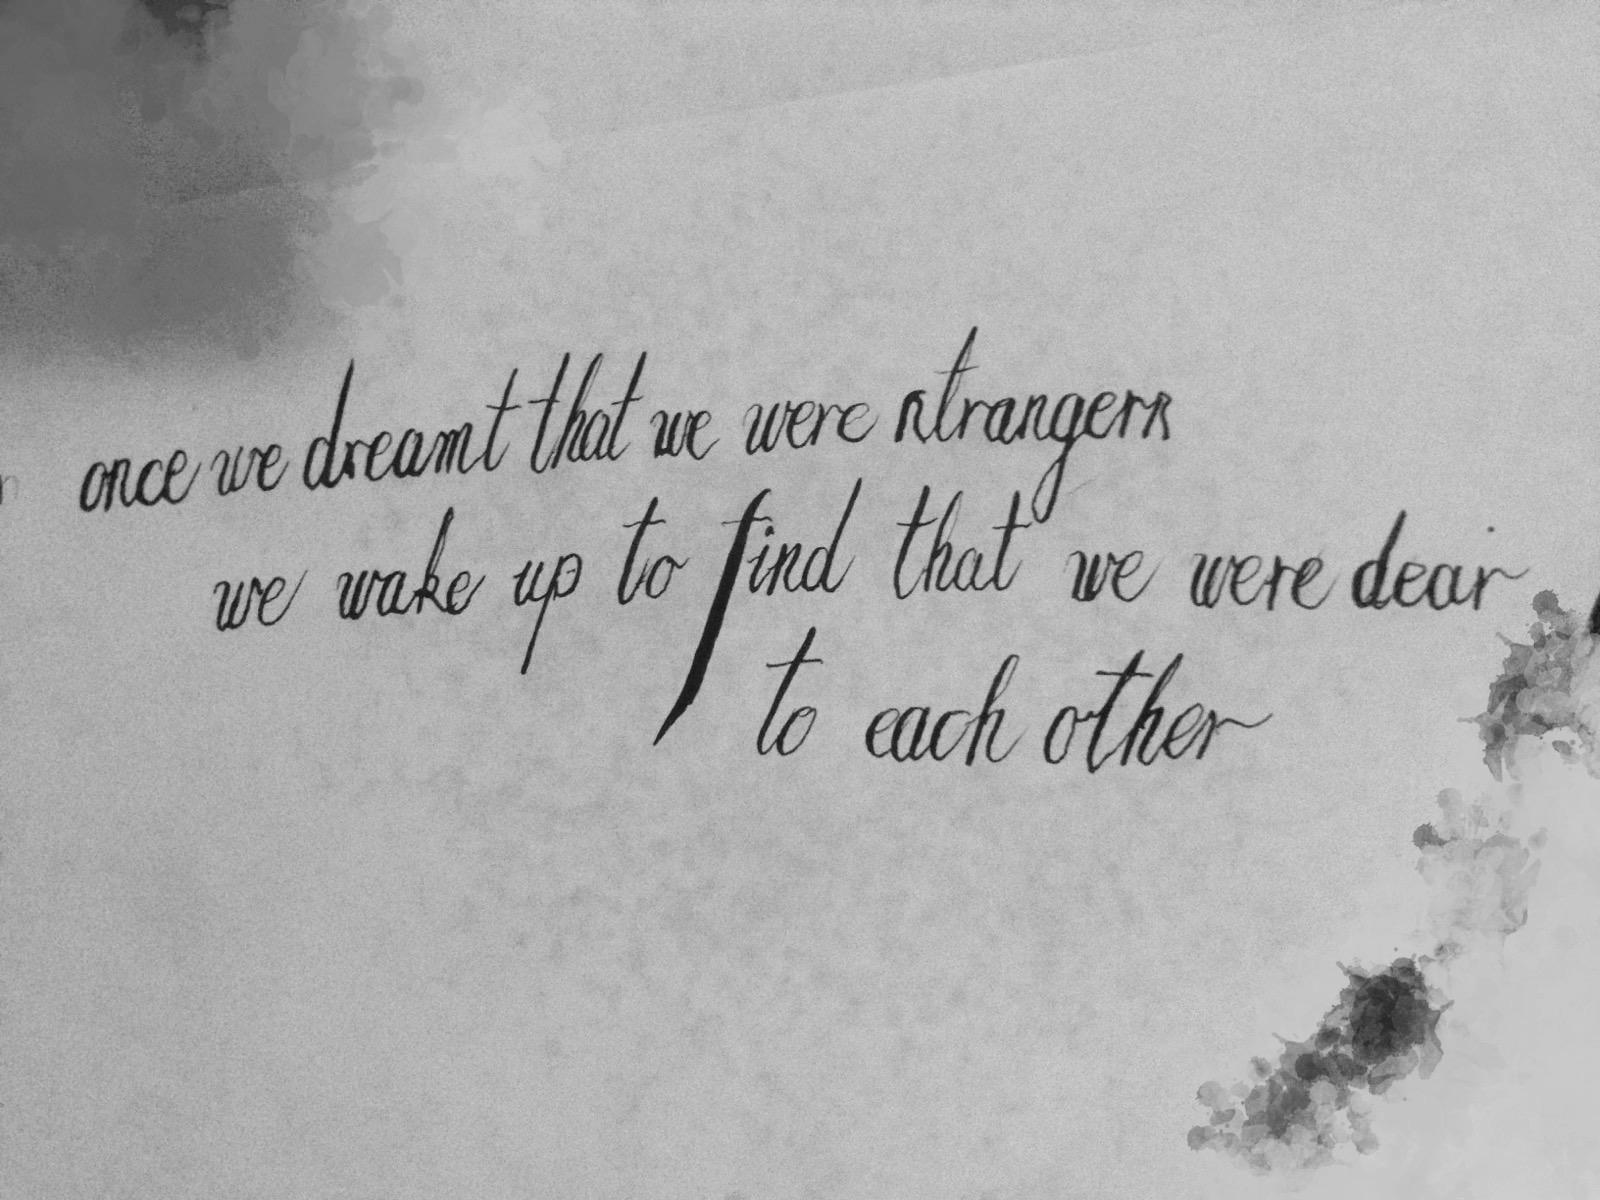 once we dreamt that we were strangers
we wake up to find that we were dear
to each other